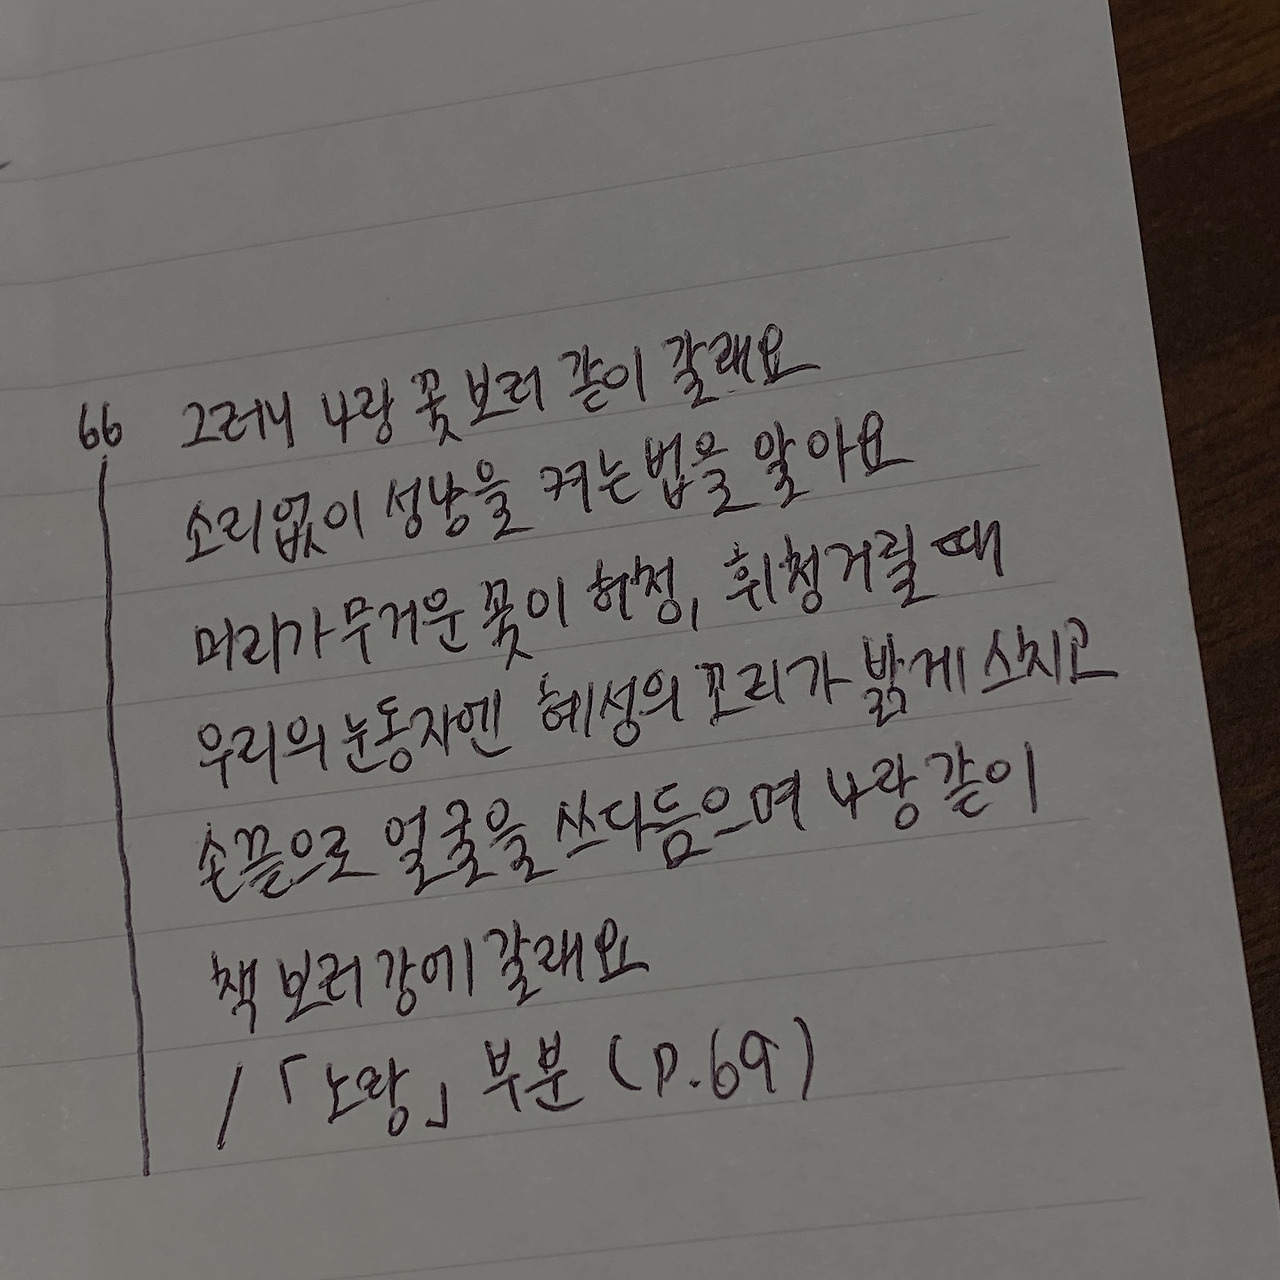 66 그러니 나랑 꽃 보러 같이 갈래요
소리없이 성냥을 켜는 법을 알아요
머리가 무거운 꽃이 허청, 휘청거릴 때
우리의 눈동자엔 혜성의 꼬리가 밝게 스치고
손끝으로 얼굴을 쓰다듬으며 나랑 같이
책 보러 강에 갈래요
/「노랑」 부분 (p.69)